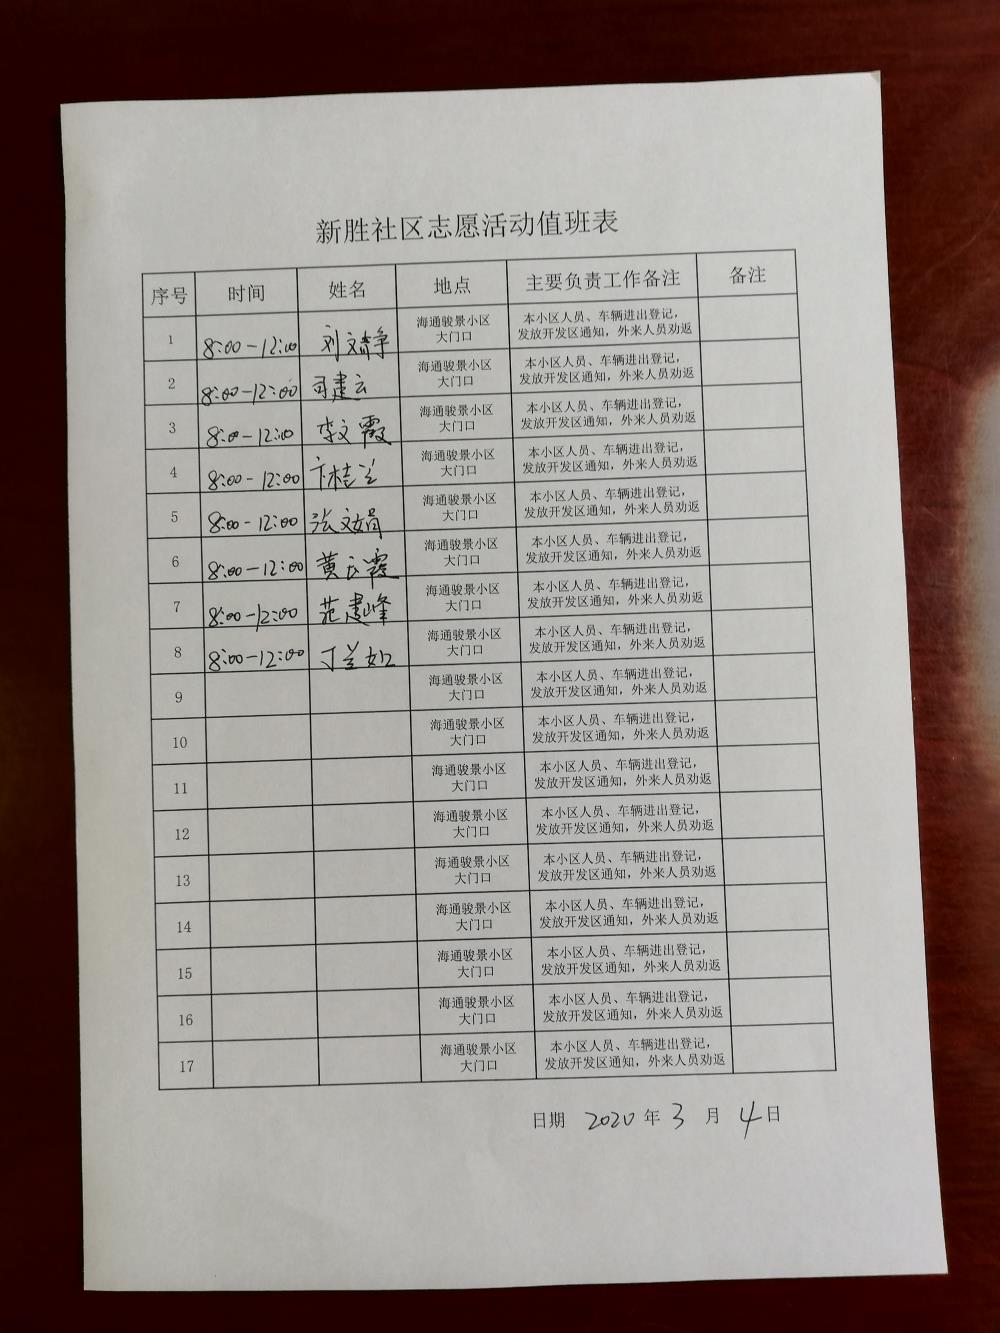 新胜社区志愿活动值班表
序号 时间 姓名 地点 主要负责工作备注 备注
1 8:00-12:00 刘文静 海通骏景小区 本小区人员、车辆进出登记，
大门口 发放开发区通知，外来人员劝返
2 8:00-12:00 司建云 海通骏景小区 本小区人员、车辆进出登记，
大门口 发放开发区通知，外来人员劝返
3 8:00-12:00 李文霞 海通骏景小区 本小区人员、车辆进出登记，
大门口 发放开发区通知，外来人员劝返
4 8:00-12:00 卞桂兰 海通骏景小区 本小区人员、车辆进出登记，
大门口 发放开发区通知，外来人员劝返
5 8:00-12:00 张文娟 海通骏景小区 本小区人员、车辆进出登记，
大门口 发放开发区通知，外来人员劝返
6 8:00-12:00 海通骏景小区 本小区人员、车辆进出登记，
大门口 发放开发区通知，外来人员劝返
7 8:00-12:00 范建峰 海通骏景小区 本小区人员、车辆进出登记，
大门口 发放开发区通知，外来人员劝返
8 8:00-12:00 丁兰如 海通骏景小区 本小区人员、车辆进出登记，
大门口 发放开发区通知，外来人员劝返
9 海通骏景小区 本小区人员、车辆进出登记，
大门口 发放开发区通知，外来人员劝返
10 海通骏景小区 本小区人员、车辆进出登记，
大门口 发放开发区通知，外来人员劝返
11 海通骏景小区 本小区人员、车辆进出登记，
大门口 发放开发区通知，外来人员劝返
12 海通骏景小区 本小区人员、车辆进出登记，
大门口 发放开发区通知，外来人员劝返
13 海通骏景小区 本小区人员、车辆进出登记，
大门口 发放开发区通知，外来人员劝返
14 海通骏景小区 本小区人员、车辆进出登记，
大门口 发放开发区通知，外来人员劝返
15 海通骏景小区 本小区人员、车辆进出登记，
大门口 发放开发区通知，外来人员劝返
16 海通骏景小区 本小区人员、车辆进出登记，
大门口 发放开发区通知，外来人员劝返
17 海通骏景小区 本小区人员、车辆进出登记，
大门口 发放开发区通知，外来人员劝返
日期 2020 年 3 月 4 日